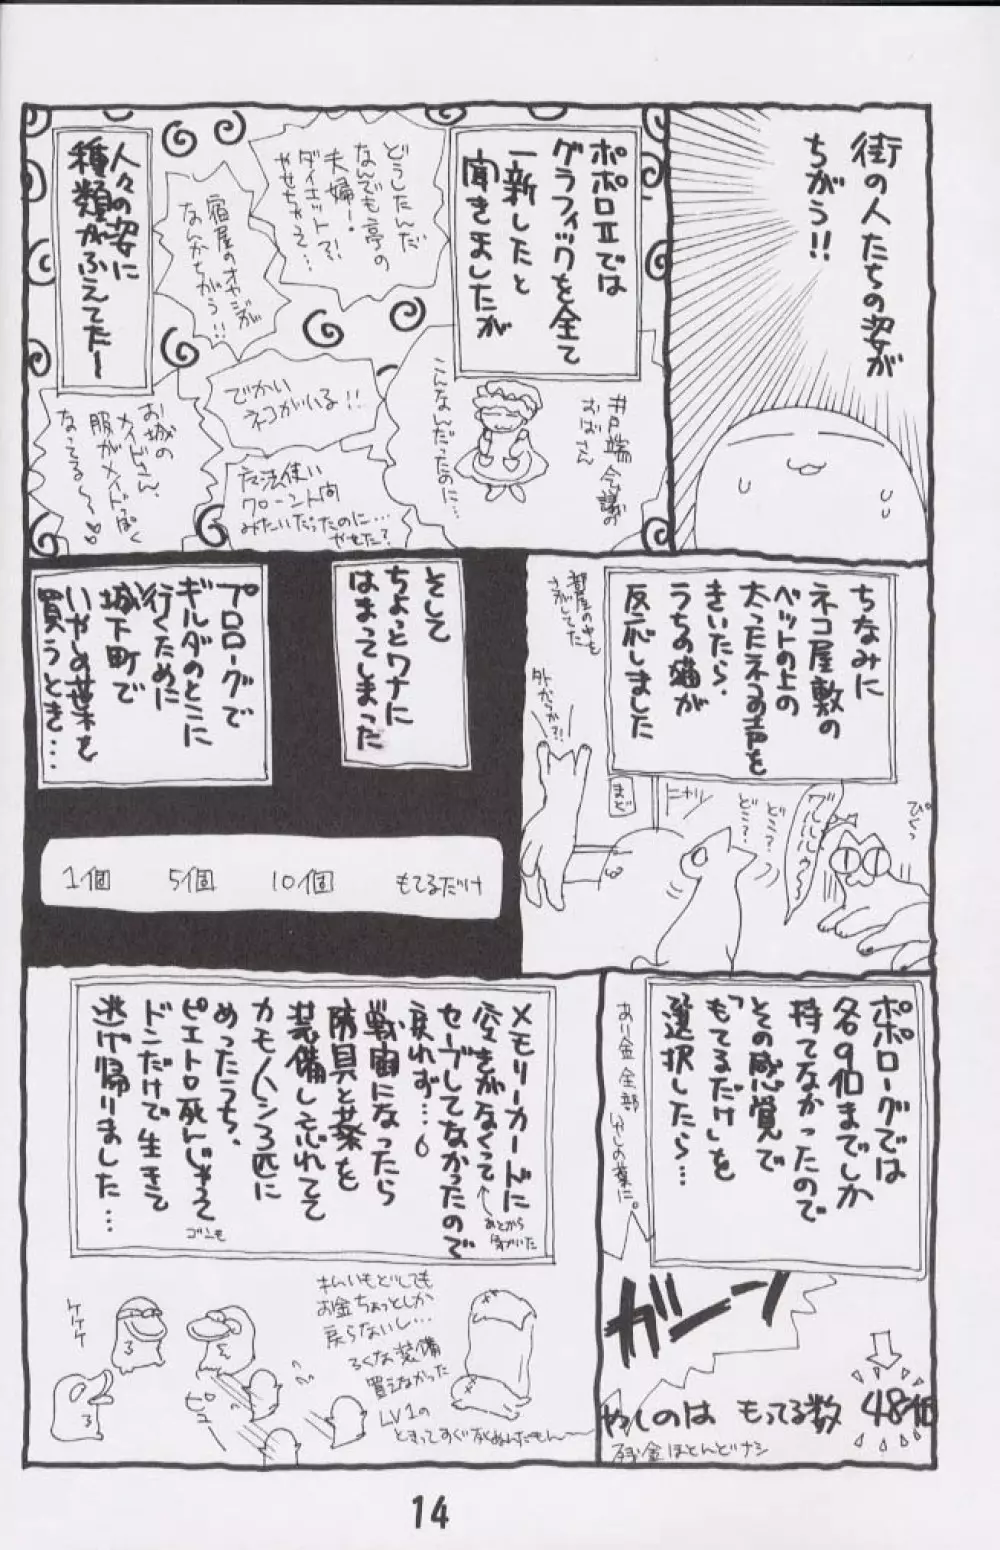 街の人たちの姿が
ちがう!!
ポポロIIでは
グラフィックを全て
一新したと
聞きましたが
どうしたんだ
なんでも亭の
夫婦ー!
ダイエット?!
やせちゃって…
宿屋のオヤジが
なんかちがう!!
人々の姿に
種類がふえてたー
井戸端会議の
おばさん
こんなんだったのに…
でかい
ネコがいる!!
魔法使い
みたいだったのに…
やめた?
お城の
メイドさん、
服がメイドっぽく
なってる〜〜
ちなみに
ネコ屋敷の
ベットの上の
太ったネコの声を
きいたら、
うちの猫が
反応しました
ぴくっ
グルルルゥ〜
どこ?
どこ?
ニャッ
まど
外からか?!
部屋の中も
さがしてた
そして
ちょっとワナに
はまってしまった
プロローグで
ギルダのとこに
行くために
城下町で
いやしの葉を
買うとき…
1個 5個 10個 もてるだけ
ポポローグでは
各9個までしか
持てなかったので
その感覚で
「もてるだけ」を
選択したら…
あり金全部
いやしの葉に。
ガーン
やしのは もってる数 48個
残金ほとんどナシ
メモリーカードに
空きがなくって
あとから
気がついた
セーブしてなかったので
戻れず…
戦闘になったら
防具と葉を
装備し忘れてて
カモノハシ3匹に
めったうち、
ピエトロ死んじゃって
ゴンも
ドンだけで生きて
逃げ帰りました…
ケケケ
お金ちょっとしか
戻らないし…
ろくな装備
買えなかった
LV1の
14